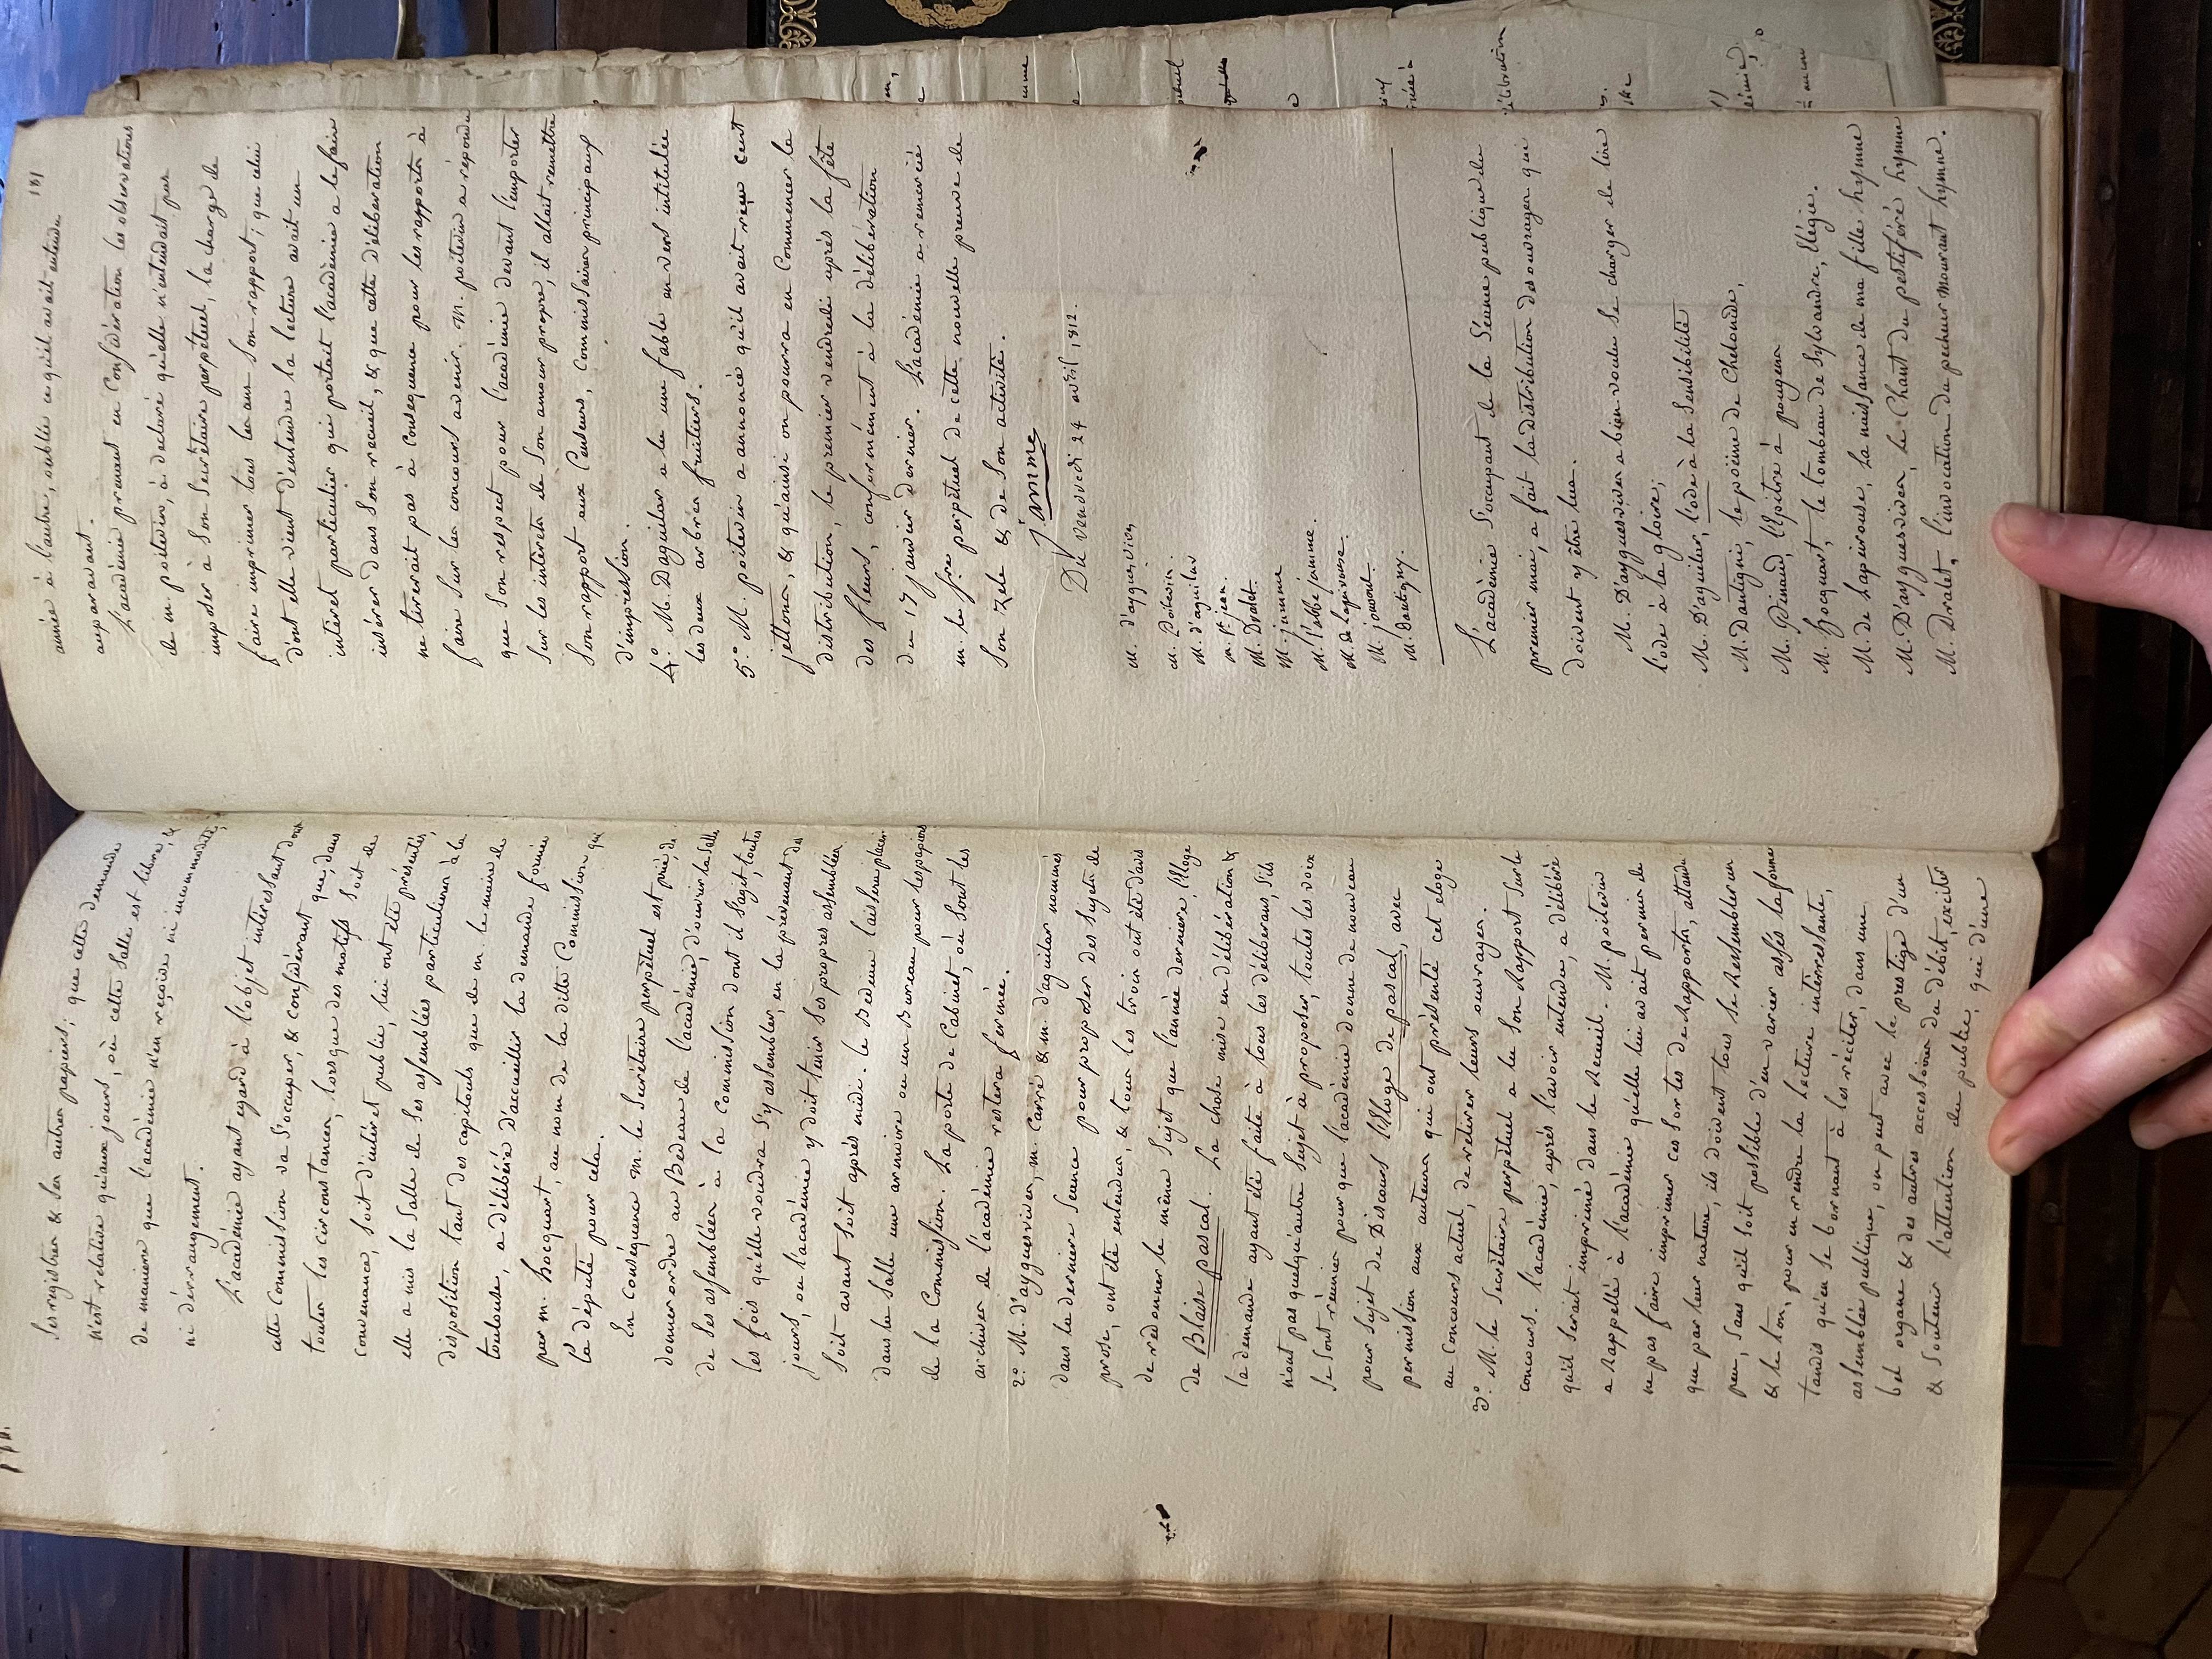 ses registres & ses autres papiers; que cette demande
n'est relative qu'aux jours, où cette Salle est libre, &
de maniere que l'académie n'en reçoive ni incommodité,
ni dérangement.
L'académie ayant egard à l'objet intéressant dont
cette Commission va s'occuper, & considérant que, dans
toutes les circonstances, lorsque des motifs soit de
convenance, soit d'intérêt public, lui ont été présentés,
elle a mis la Salle de ses assemblées particulieres à la
disposition tant des capitouls que de m. le maire de
toulouse, a délibéré d'accueillir la demande formée
par m. hocquart, au nom de la ditte Commission qui
l'a député pour cela.
En conséquence m. le Secrétaire perpétuel est prié, de
donner ordre au Bedeau de l'académie, d'ouvrir la Salle
de ses assemblées à la Commission dont il s'agit, toutes
les fois qu'elle voudra s'y assembler, en la prévenant des
jours, où l'académie y doit tenir ses propres assemblées
soit avant soit après midi. le Bedeau laissera placer
dans la Salle une armoire ou un Bureau pour les papiers
de la Commission. La porte de Cabinet, où sont les
archives de l'académie restera fermée.
2.° M. d'ayguesvives, m. Carré & m. d'aguilar nommés
dans la derniere Séance pour proposer des Sujets de
prose, ont été entendus, & tous les trois ont été d'avis
de redonner le même Sujet que l'année derniere, l'Eloge
de Blaise pascal. La chose mise en délibération &
la demande ayant été faite à tous les délibérans, s'ils
n'ont pas quelqu'autre Sujet à proposer, toutes les voix
se sont réunies pour que l'académie donne de nouveau
pour Sujet de Discours l'Eloge de pascal, avec
permission aux auteurs qui ont présenté cet eloge
au Concours actuel, de retirer leurs ouvrages.
3.° M. le Secrétaire perpétuel a lu son Rapport sur le
concours. l'académie, après l'avoir entendu, a délibéré
qu'il serait imprimé dans le Recueil. M. poitevin
a Rappellé à l'académie qu'elle lui avait permis de
ne pas faire imprimer ces Sortes de Rapports, attendu
que par leur nature, ils doivent tous se Ressembler un
peu, sans qu'il soit possible d'en varier assés la forme
& le ton, pour en rendre la lecture intéressante,
tandis qu'en se bornant à les réciter, dans une
assemblée publique, on peut avec le prestige d'un
bel organe & des autres accessoires du débit, exciter
& soutenir l'attention du public, qui d'une
181
année à l'autre, oublie ce qu'il avait entendu
auparavant.
L'académie prenant en Considération les observations
de m. poitevin, a déclaré qu'elle n'entendait pas
imposer à son Secrétaire perpétuel, la charge de
faire imprimer tous les ans son rapport; que celui
d'ont elle vient d'entendre la lecture avait un
intérêt particulier qui portait l'académie a le faire
insérer dans son recueil, & que cette délibération
ne tirerait pas à Conséquence pour les rapports à
faire sur les concours à venir. M. poitevin a répondu
que son respect pour l'académie devant l'emporter
sur les intérêts de son amour propre, il allait remettre
son rapport aux Censeurs, Commissaires principaux
d'impression.
4.° M. Daguilar a lu une fable en vers intitulée
les deux arbres fruitiers.
5.° M. poitevin a annoncé qu'il avait reçu cent
jettons, & qu'ainsi on pourra en Commencer la
distribution, le premier vendredi après la fête
des fleurs, conformément à la délibération
du 17 janvier dernier. L'académie a remercié
m. le Sre. perpétuel de cette nouvelle preuve de
son zele & de son activité.
jamme
Du vendredi 24 avril 1812.
M. d'ayguesvives
M. Poitevin.
M. d'aguilar
M. St. jean.
M. Dralet.
M. jamme
M. l'abbé jamme.
M. de Lapeirouse.
M. jouvent.
M. Dantigny.
L'académie s'occupant de la Séance publique du
premier mai, a fait la Distribution des ouvrages qui
doivent y être lus.
M. D'ayguesvives a bien voulu se charger de lire
l'ode à la gloire;
M. D'aguilar, l'ode à la Sensibilité
M. Dantigni, le poëme de Chelonide,
M. Pinaud, l'Epitre à pougens
M. hocquart, le tombeau de Sylvandre, Elégie.
M. de Lapeirouse, La naissance de ma fille hymne
M. D'ayguesvives, le Chant du pestiféré hymne
M. Dralet, l'invocation du pecheur mourant hymne.